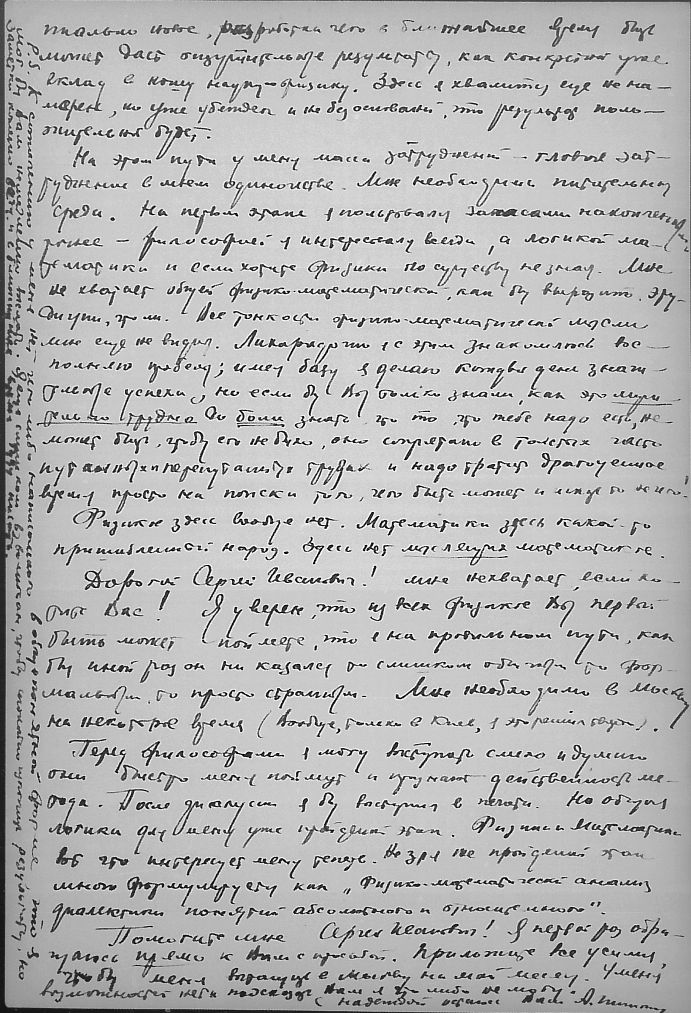 тально новое, разработка чего в ближайшее время быть
может даст ощутительные результаты, как конкретный уже
вклад в нашу науку-физику. Здесь я хвалиться еще не на-
мерен, но уже убежден и не без оснований, что результат поло-
жительный будет.
На этом пути у меня масса затруднений – главное зат-
руднение в моем одиночестве. Мне необходима питательная
среда. На первом этапе я пользовался запасами накопленными
ранее – философией я интересовался всегда, а логикой ма-
тематики и если хотите физики по существу не знал. Мне
не хватает общей физико-математической, как бы выразить, эру-
диции, что ли. Все тонкости физико-математической мысли
мне еще не видны. Лихорадочно я с этим знакомлюсь вос-
полняю пробелы; имея базу я делаю каждый день значи-
тельные успехи, но если бы Вы только знали, как это мучи-
тельно трудно до боли знать что то, что тебе надо есть, не-
может быть, чтобы его не было, оно спрятано в толстых часто
путанных и перепутанных трудах и надо тратить драгоценное
время просто на поиски того, чего быть может и
Физиков здесь вообще нет. Математики здесь какой-то
пришибленный народ. Здесь нет мыслящих математиков.
Дорогой Сергей Иванович! Мне нехватает, если хо-
тите Вас! Я уверен, что из всех физиков Вы первый
быть может поймете, что я на правильном пути, как
бы иной раз он ни казался то слишком обычным то фор-
мальным, то просто странным. Мне необходимо в Москву
на некоторое время (Вообще, только в Киев, я это решил твердо).
Перед философами я могу выступать смело и думаю
они быстро меня поймут и признают действенность ме-
тода. После дискуссии я бы выступил в печати. Но общая
логика для меня уже пройденный этап. Физика и Математика
вот что интересует меня теперь. Не зря же пройденный этап
мною формулируется как „Физико-математический анализ
диалектики понятий абсолютного и относительного".
Помогите мне Сергей Иванович! Я первый раз обра-
щаюсь прямо к Вам с просьбой. Приложите все усилия,
чтобы меня вызвали в Москву на мой месяц. У меня
возможностей нет и подсказать Вам я что либо не могу.
С надеждой остаюсь Ваш А.
P.S. К сожалению у меня нет чего либо написанного в общепонятной форме, что я
мог бы Вам